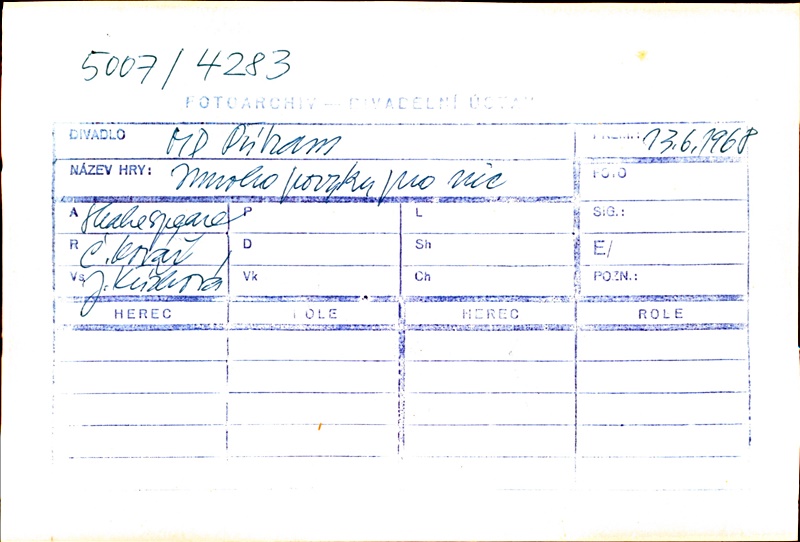 5007/4283
FOTOARCHIV — DIVADELNÍ ÚSTAV
DIVADLO MD Příbram PREM.: 13.6.1968
NÁZEV HRY: Mnoho povyku pro nic FOTO
A Shakespeare P L SIG.:
R Č. Kovář D Sh E/
Vs J. Vk Ch POZN.:
HEREC ROLE HEREC ROLE